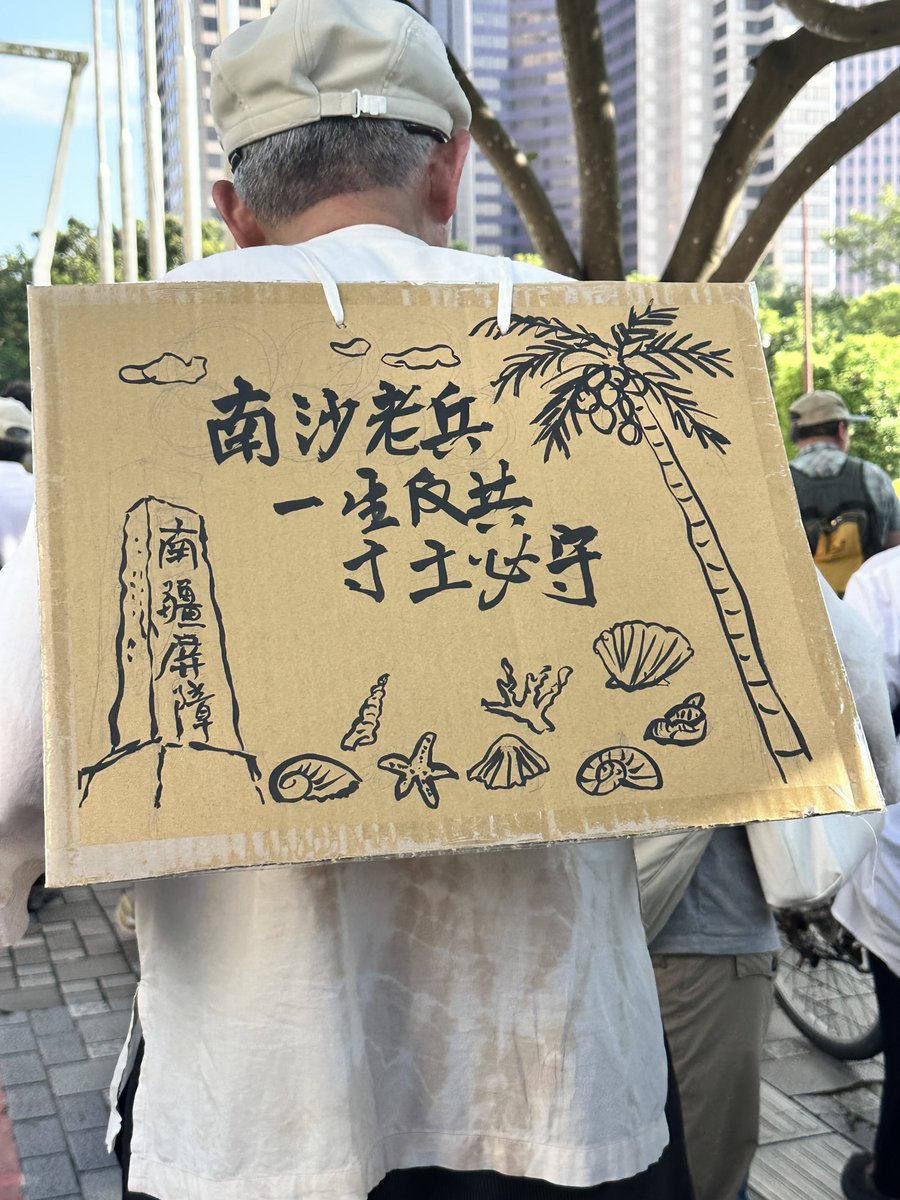 南沙老兵
一生反共
寸土必守
南疆屏障